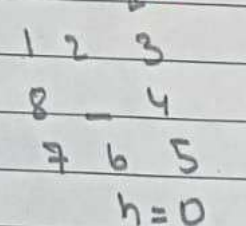 1 2 3
8 _ 4
7 6 5
h = 0